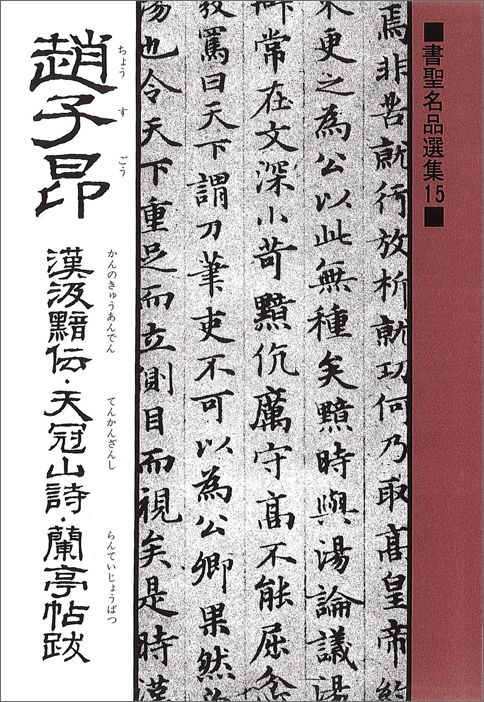 ■書聖名品選集15■
焉非苦就行放析就功何乃取髙皇帝約
束更之為公以此無種矣黯時與湯論議湯
辯常在文深小苛黯伉厲守髙不能屈忿
發罵曰天下謂刀筆吏不可以為公卿果然必
湯也令天下重足而立側目而視矣是時漢
趙子昂
ちょう す ごう
漢汲黯伝・天冠山詩・蘭亭帖跋
かんのきゅうあんでん てんかんざんし らんていじょうばつ